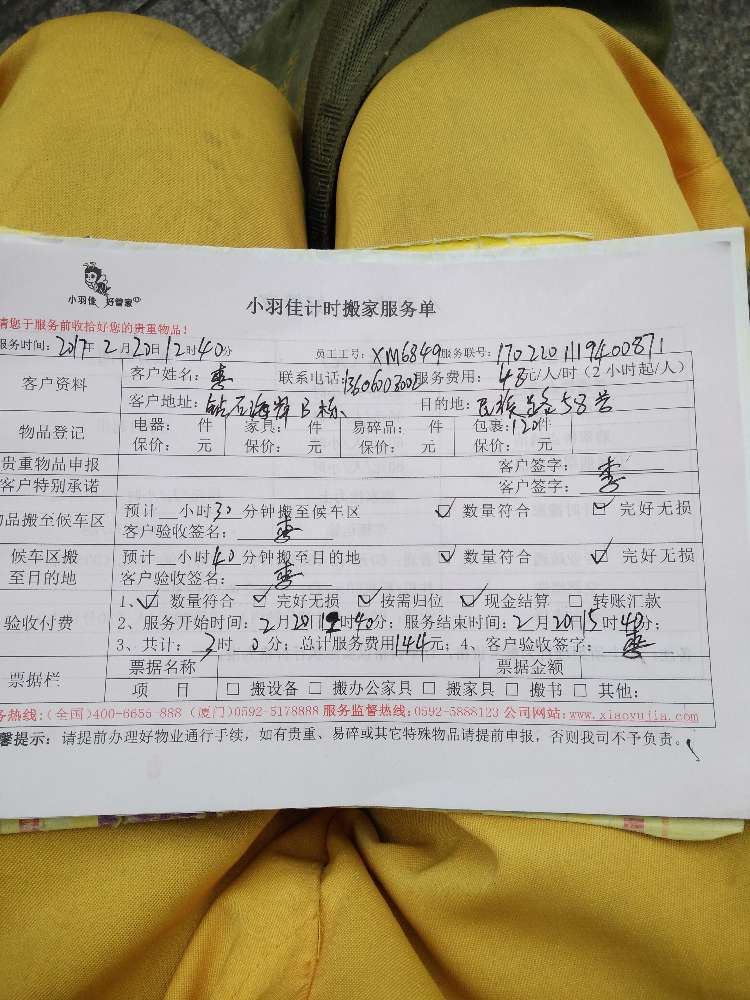 小羽佳 好管家
小羽佳计时搬家服务单
请您于服务前收拾好您的贵重物品！
服务时间：2017年2月20日12时40分 员工工号：XM6849 服务联号：
客户资料 客户姓名： 联系电话： 服务费用：48元/人/时（2小时起/人）
客户地址：钻石海岸B栋、 目的地：民族 58号
物品登记 电器： 件 家具： 件 易碎品： 件 包裹：120件
保价： 元 保价： 元 保价： 元 保价： 元
贵重物品申报 客户签字：
客户特别承诺 客户签字：
物品搬至候车区 预计 小时30分钟搬至候车区 ☑ 数量符合 ☑ 完好无损
客户验收签名：
候车区搬至目的地 预计 小时40分钟搬至目的地 ☑ 数量符合 ☑ 完好无损
客户验收签名：
验收付费 1、☑ 数量符合 ☑ 完好无损 ☑ 按需归位 ☑ 现金结算 □ 转账汇款
2、服务开始时间：2月20日12时40分；服务结束时间：2月20日15时40分；
3、共计：3时0分；总计服务费用144元；4、客户验收签字：
票据栏 票据名称 票据金额
项 目 □ 搬设备 □ 搬办公家具 □ 搬家具 □ 搬书 □ 其他：
务热线：(全国)400-6655-888 (厦门)0592-5178888 服务监督热线：0592-5888123 公司网站：www.xiaoyujia.com
馨提示：请提前办理好物业通行手续，如有贵重、易碎或其它特殊物品请提前申报，否则我司不予负责。